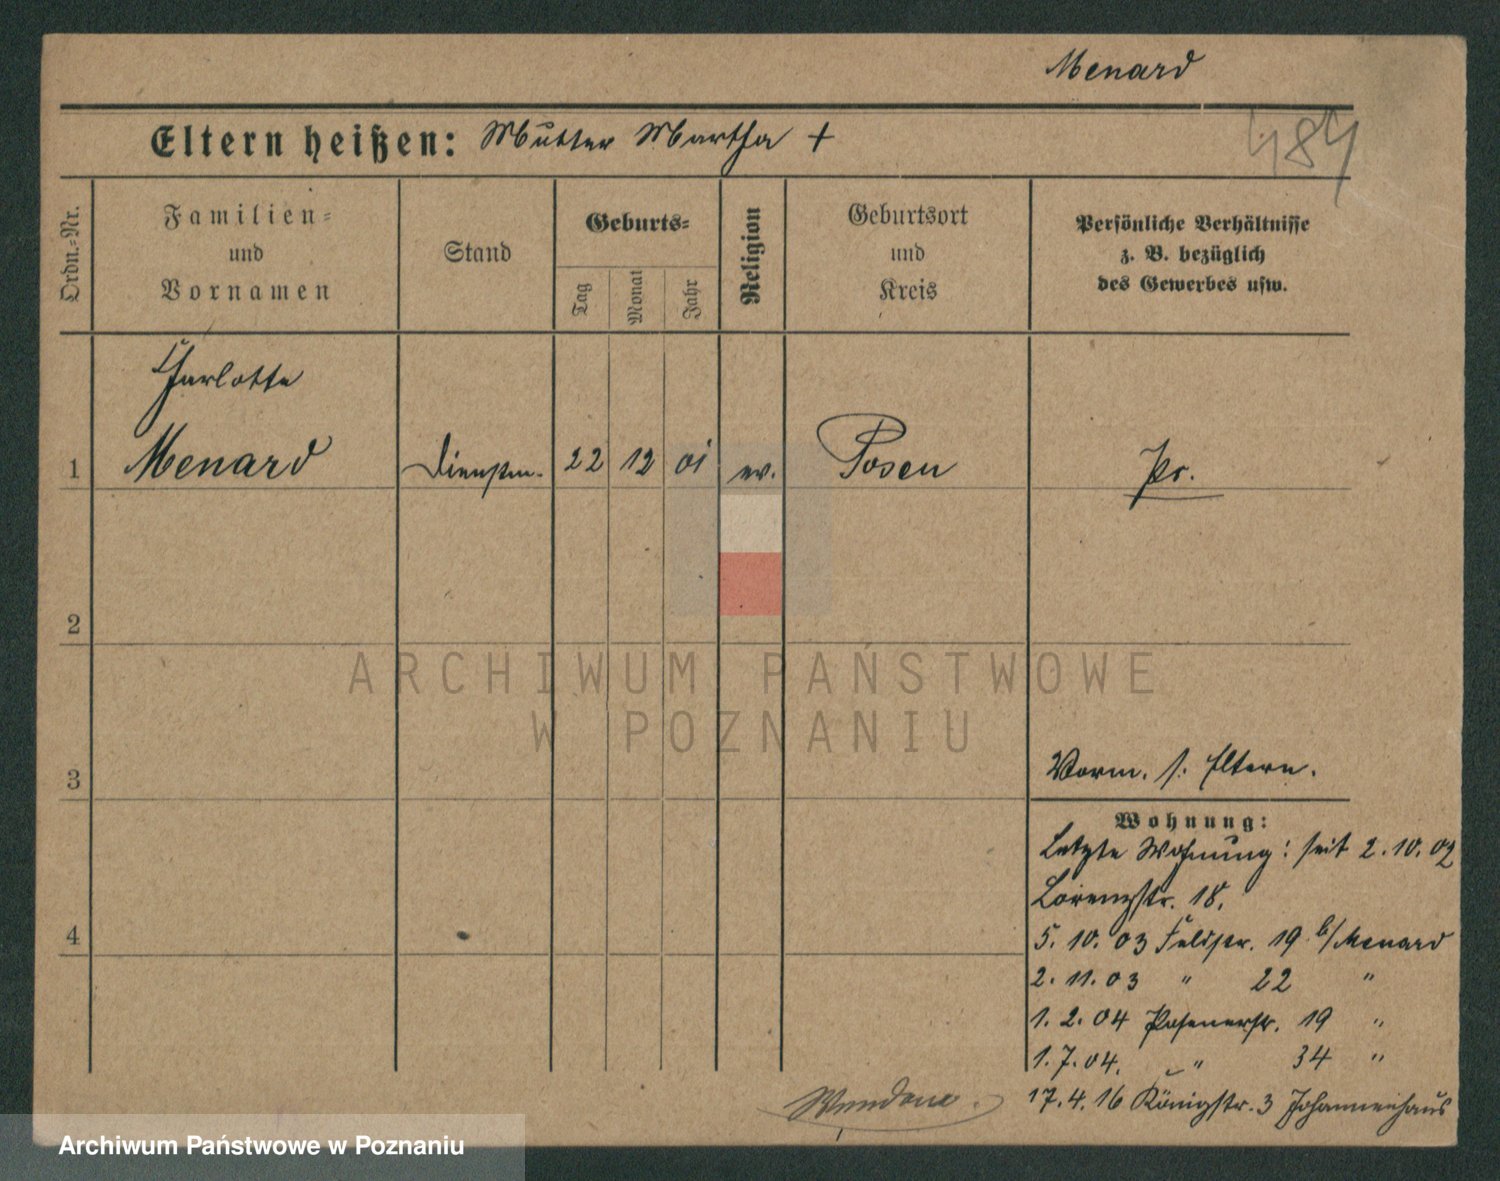 Menard
484
Eltern heißen: Mutter Martha +
Ordn.=Nr.
Familien=
und
Vornamen
Stand
Geburts=
Tag
Monat
Jahr
Religion
Geburtsort
und
Kreis
Persönliche Verhältnisse
z. B. bezüglich
des Gewerbes usw.
Charlotte
1 Menard Dienstm. 22 12 01 ev. Posen Pr.
2
ARCHIWUM PAŃSTWOWE
W POZNANIU
3
Vorm. s. Eltern.
Wohnung:
Letzte Wohnung: seit 2.10.02
Lorenzstr. 18.
4
5.10.03 Feldstr. 19 b/Menard
2.11.03 " 22 "
1.2.04 Posenerstr. 19 "
1.7.04. " 34 "
17.4.16 Königstr. 3 Johannenhaus
Archiwum Państwowe w Poznaniu